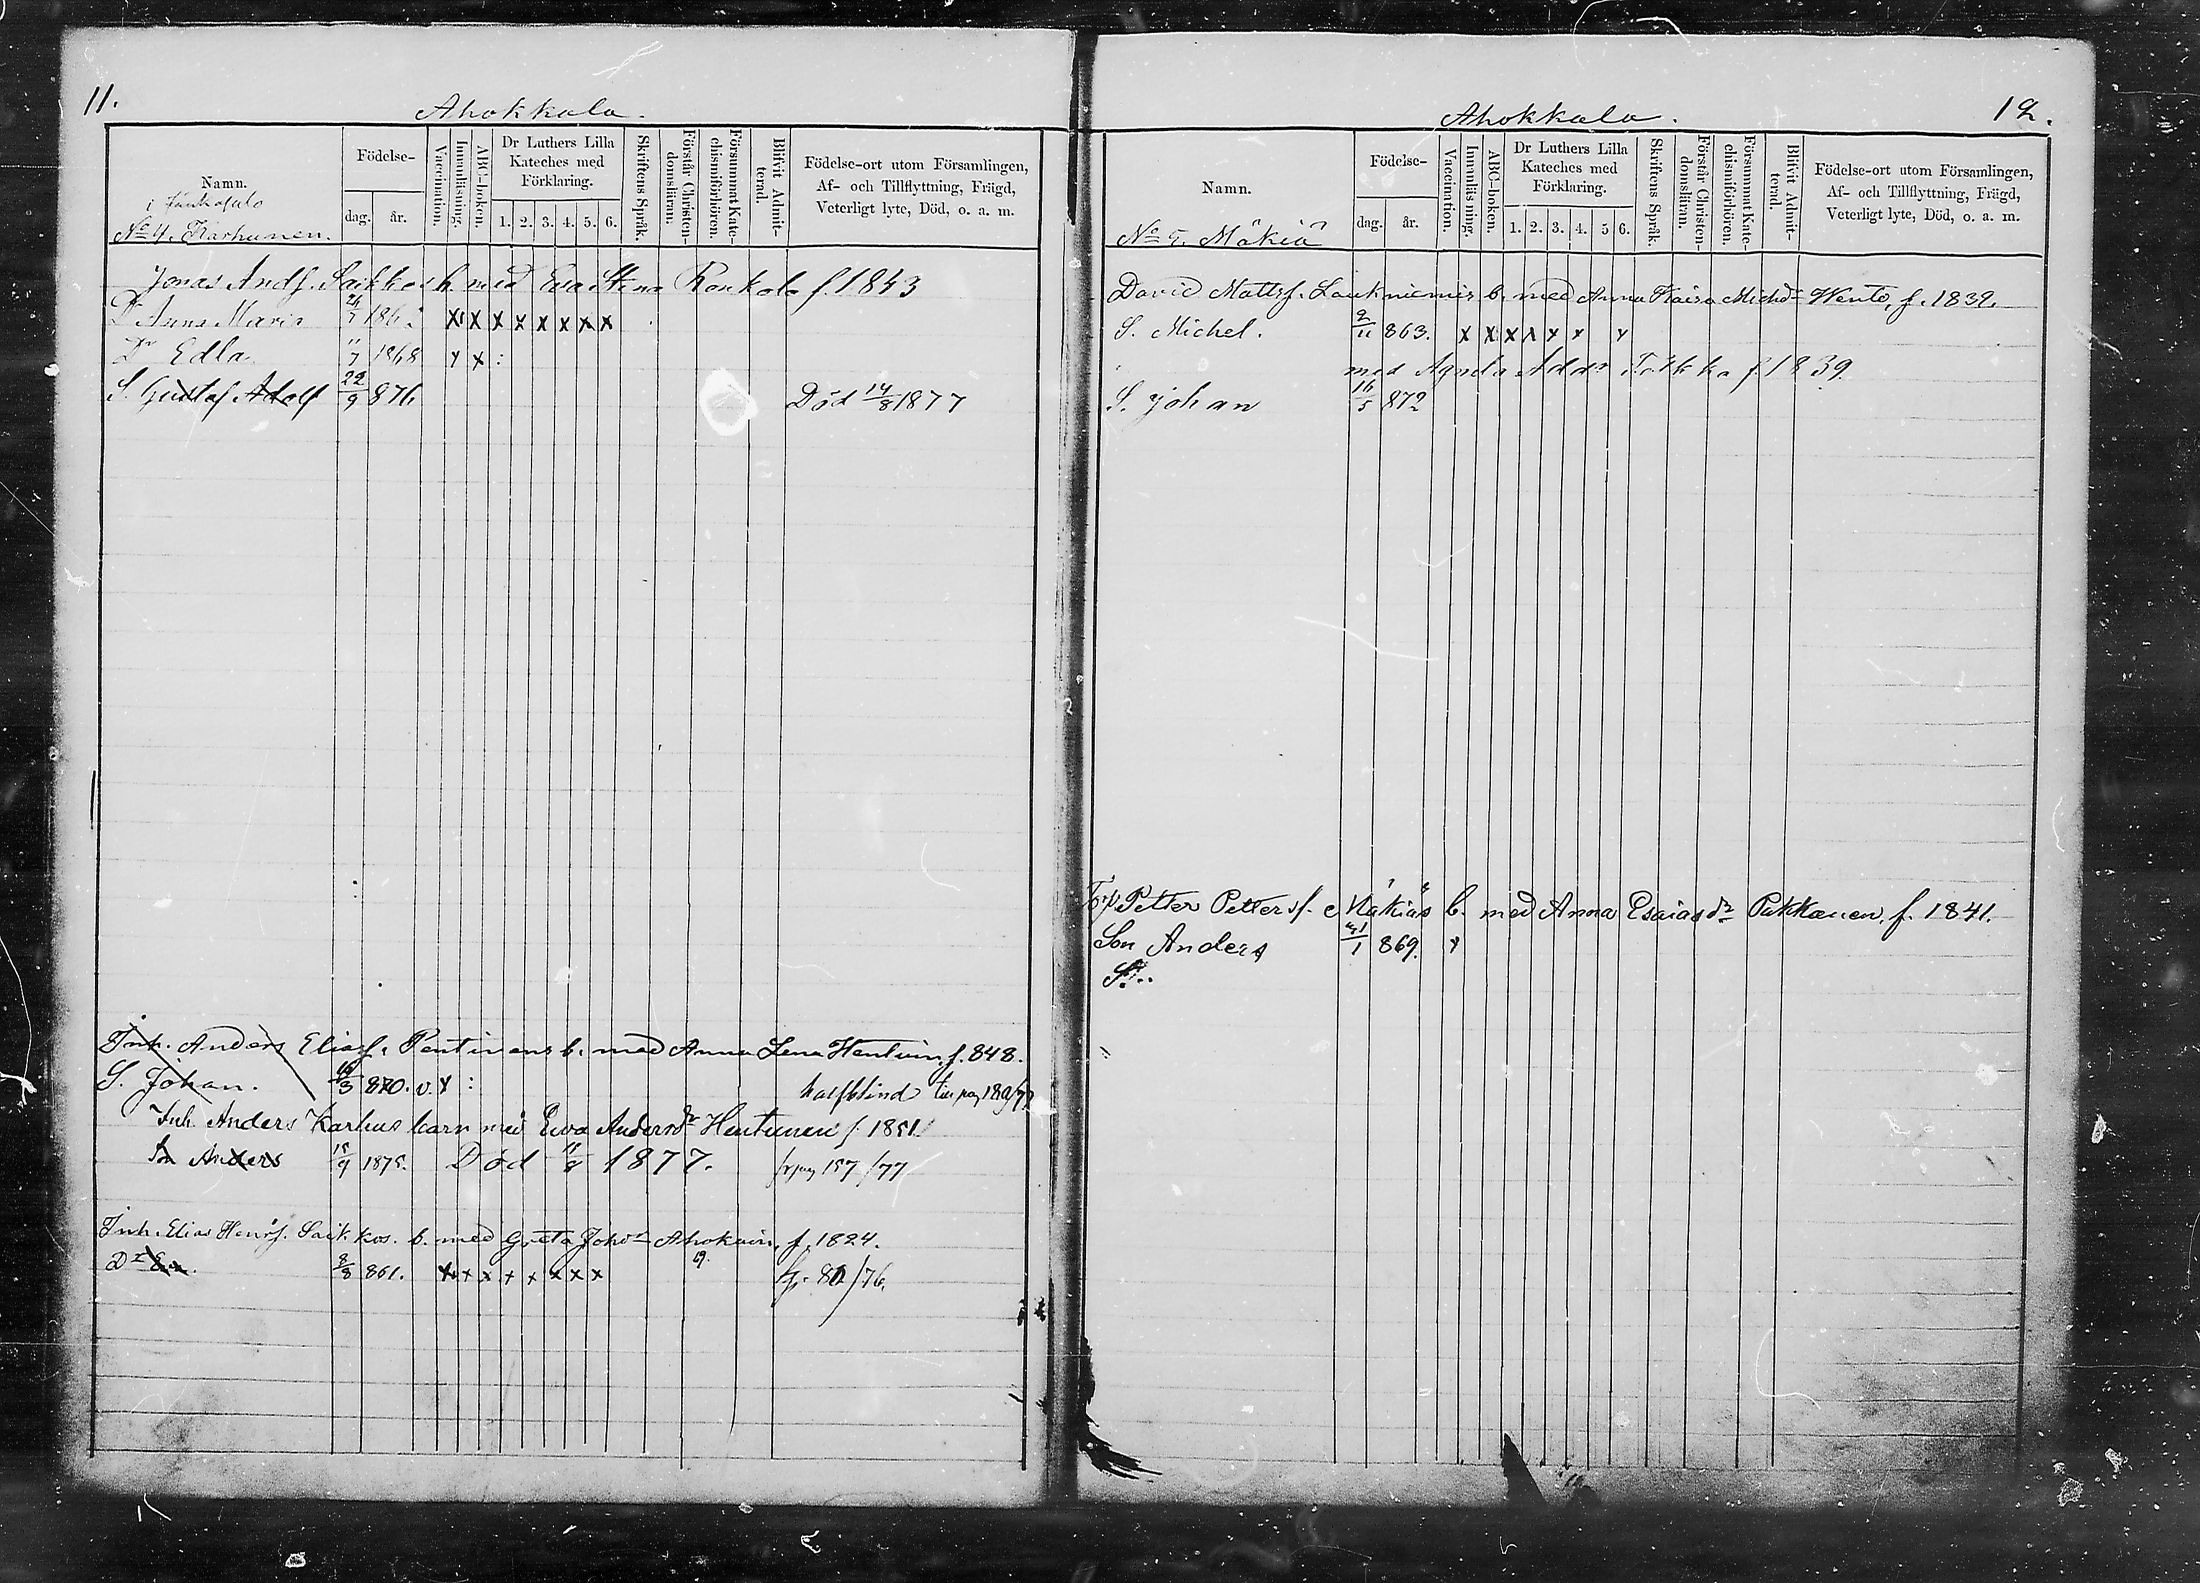 11.
Ahokkala.
Namn.
Födelse-
dag.
år.
Vaccination.
Innanläsning.
ABC-boken.
Dr Luthers Lilla
Kateches med
Förklaring.
1. 2. 3. 4. 5. 6.
Skriftens Språk.
Förstår Christen-
domsläran.
Försummat Kate-
chismiförhören.
Blifvit Admit-
terad.
Födelse-ort utom Församlingen,
Af- och Tillflyttning, Frägd,
Veterligt lyte, Död, o. a. m.
No 4. Karhunen.
Jonas Andſ. Saikkos b. med Eva Stina Ronkala f. 1843
Dr Anna Maria 24/7 186 x x x x x x x x
Dr Edla 11/7 1868 x x :
S. Gustaf Adolf 22/9 876 Död 14/8 1877
Inh. Anders Eliasſ. Pentinens b. med Anna Lena Hentuin f. 848.
S. Johan. /3 870. v. x : halfblind till pag 180/77
Inh Anders Karhus barn med Ewa Andersdr Hentunen f. 1851.
Son Anders 15/9 1875. Död 11/8 1877. fr pag 157/77
Inh. Elias Henrſ. Saikkos. b. med Greta Johdr Ahokain. f. 1824.
Dr 3/8 861. x x x x x x x x 9. fr. 81/76.
12.
Ahokkala.
Namn.
Födelse-
dag.
år.
Vaccination.
Innanläsning.
ABC-boken.
Dr Luthers Lilla
Kateches med
Förklaring.
1. 2. 3. 4. 5 6.
Skriftens Språk.
Förstår Christen-
domsläran.
Försummat Kate-
chismiförhören.
Blifvit Admit-
terad.
Födelse-ort utom Församlingen,
Af- och Tillflyttning, Frägd,
Veterligt lyte, Död, o. a. m.
No 5. Mäkiä
David Mattsſ. Laukniemis b. med Anna Kaisa Michdr Wento, f. 1832.
S. Michel. 2/11 863. x x x x x x x
med Agneta Addr Tokkka f. 1839.
S. Johan 16/5 872
Petter Pettersſ. Mäkiäs b. med Anna Esaiasdr Pakkanen, f. 1841.
Son Anders 21/1 869. x
S.